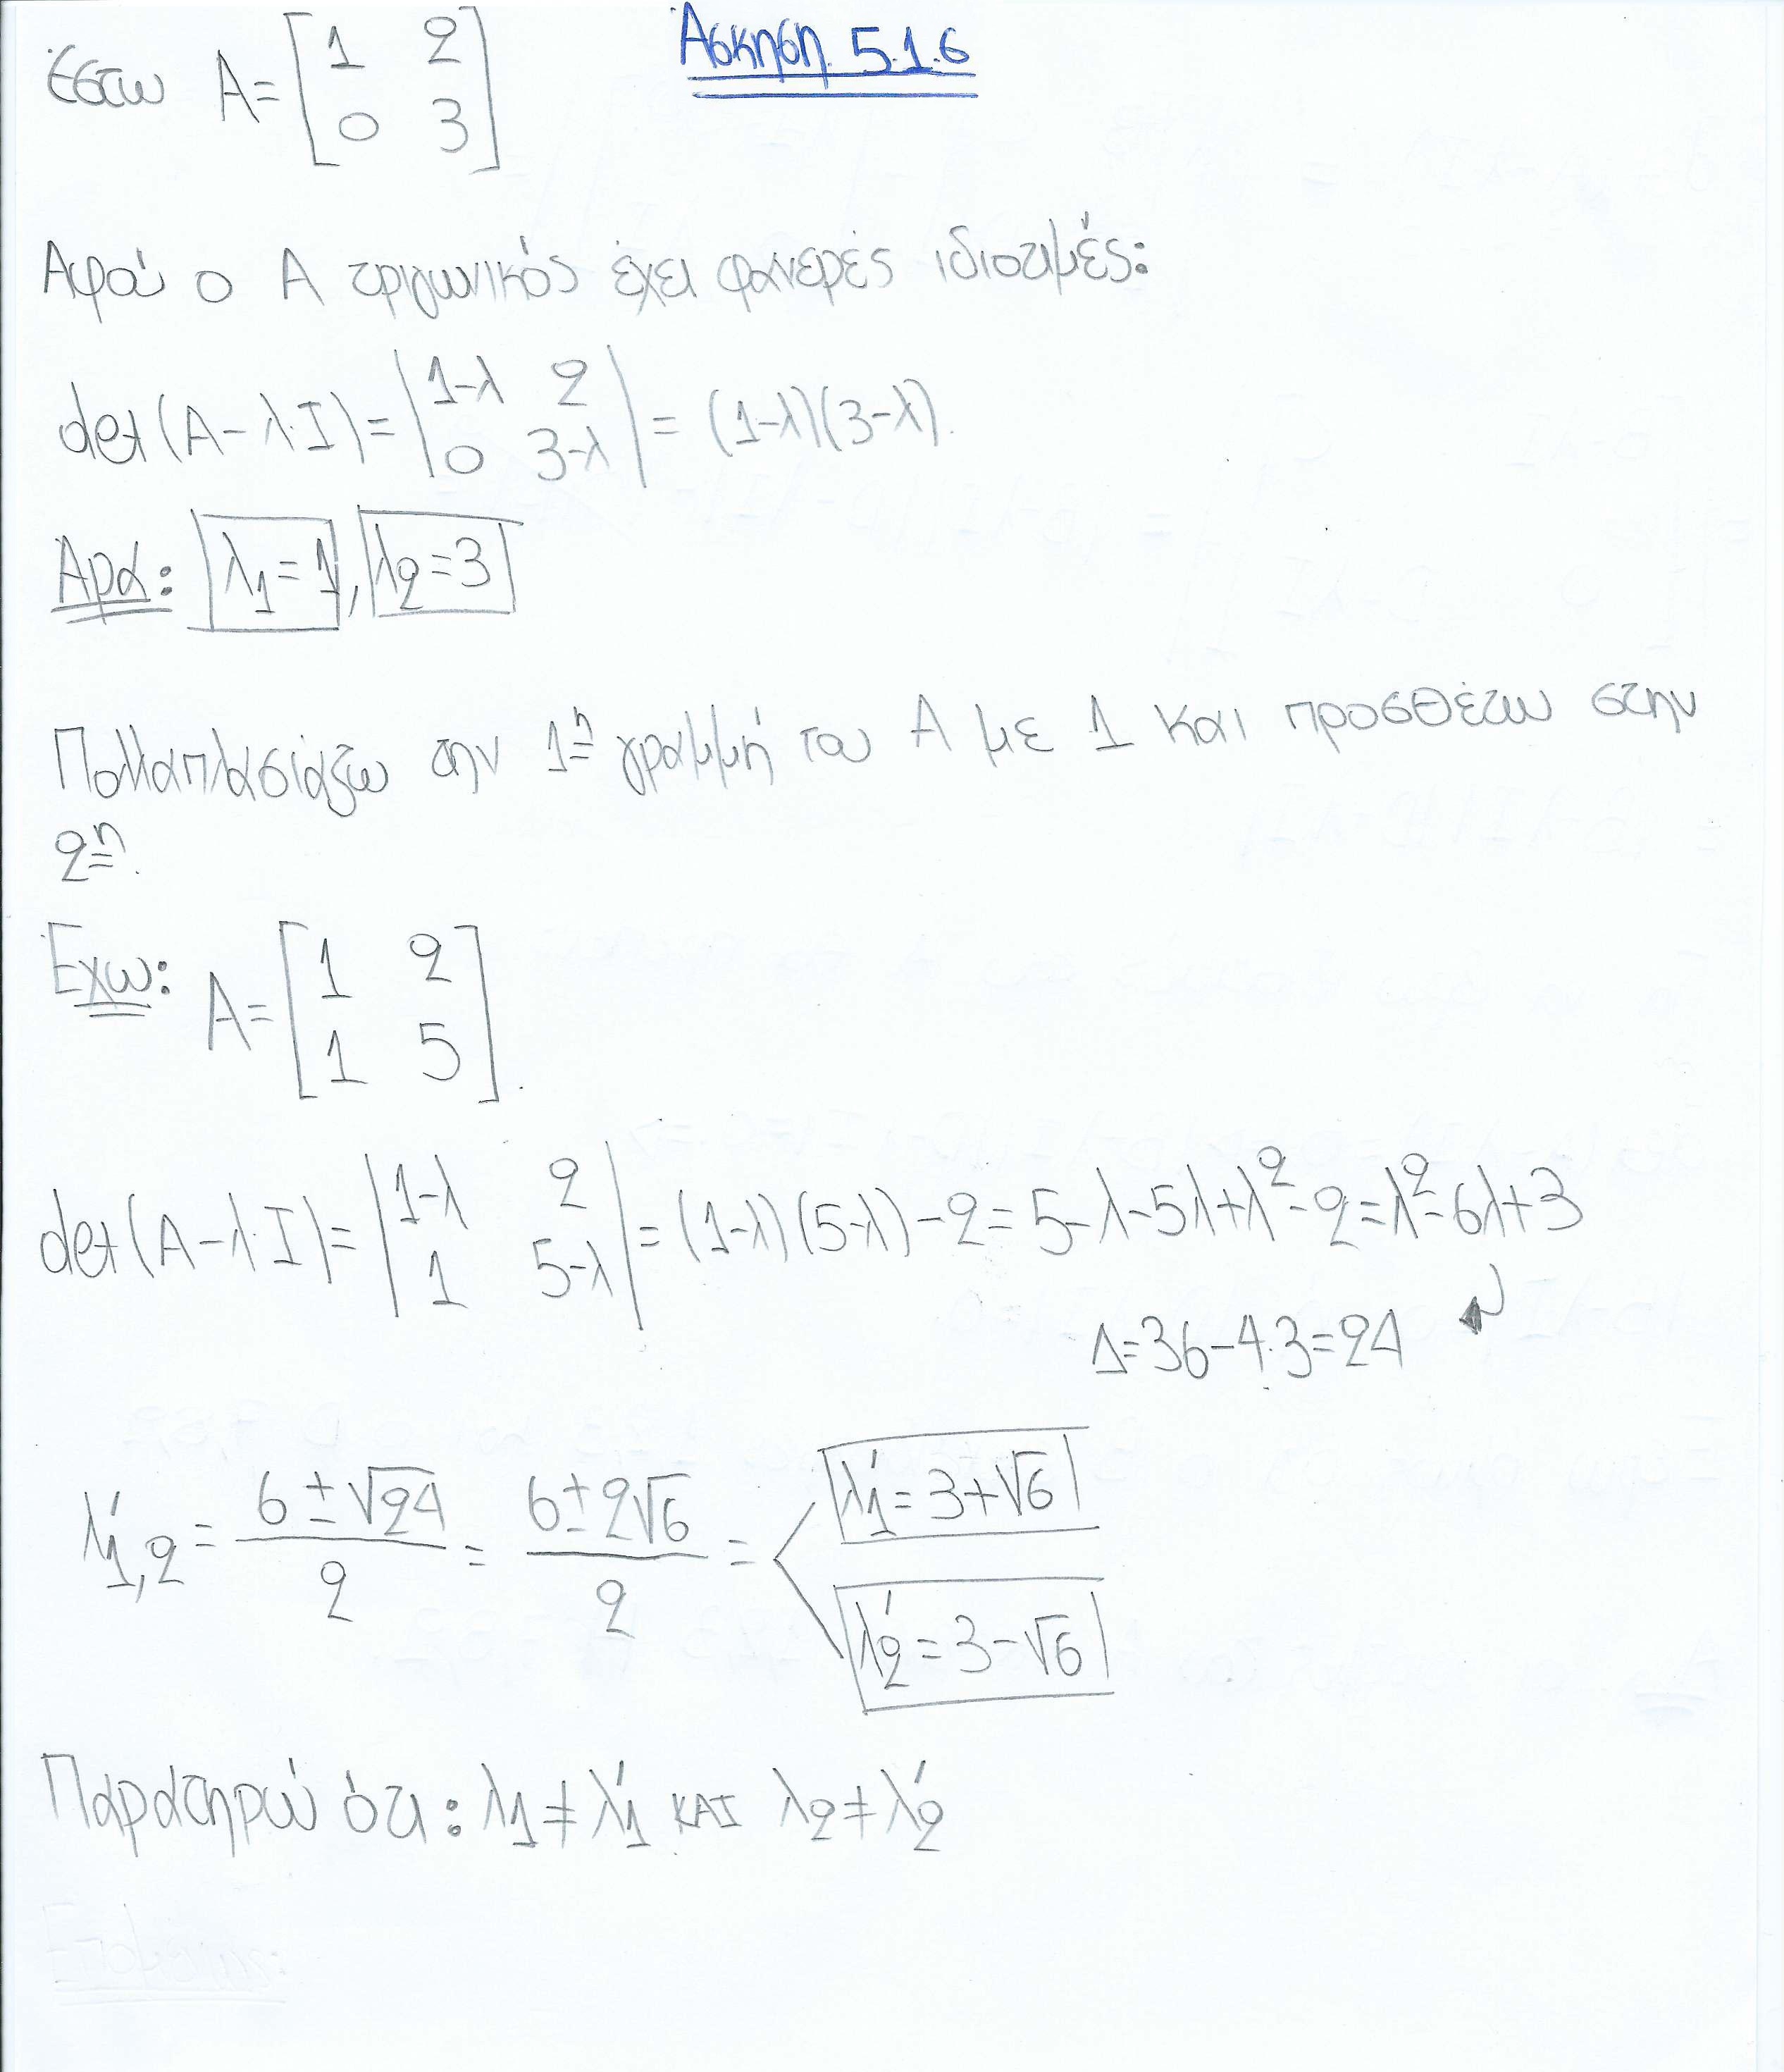 Άσκηση 5.1.6
Έστω A = [1 2; 0 3]
Αφού ο A τριγωνικός έχει φανερές ιδιοτιμές:
det(A - λ·I) = |1-λ 2; 0 3-λ| = (1-λ)(3-λ).
Άρα: λ1 = 1, λ2 = 3
Πολλαπλασιάζω την 1η γραμμή του A με 1 και προσθέτω στην
2η.
Έχω: A = [1 2; 1 5].
det(A - λ·I) = |1-λ 2; 1 5-λ| = (1-λ)(5-λ) - 2 = 5 - λ - 5λ + λ² - 2 = λ² - 6λ + 3
Δ = 36 - 4·3 = 24
λ'1,2 = (6 ± √24)/2 = (6 ± 2√6)/2 =
λ'1 = 3 + √6
λ'2 = 3 - √6
Παρατηρώ ότι: λ1 ≠ λ'1 ΚΑΙ λ2 ≠ λ'2